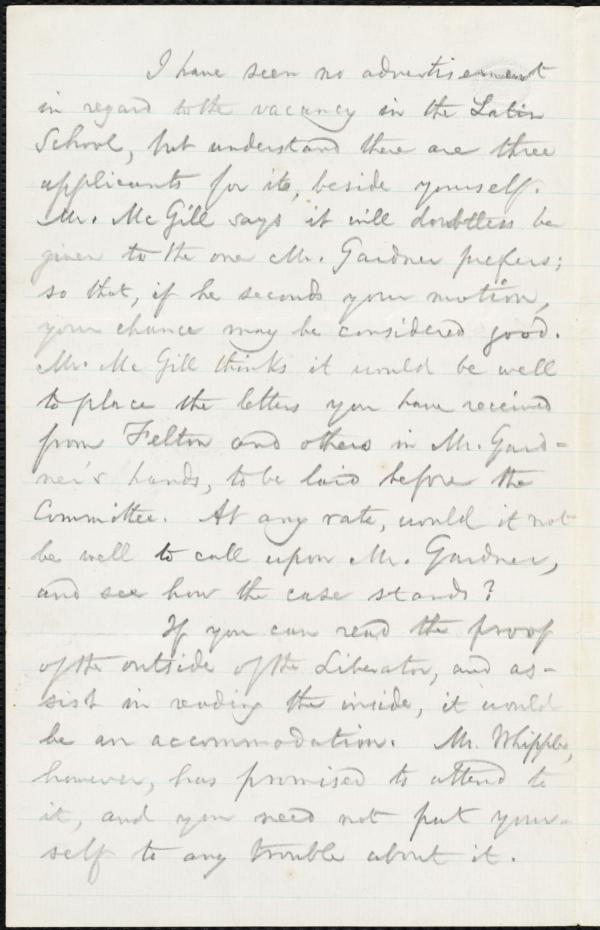 I have seen no advertisement
in regard to the vacancy in the Latin
School, but understand there are three
applicants for it, beside yourself.
Mr. McGill says it will doubtless be
given to the one Mr. Gardner prefers;
so that, if he seconds your motion,
your chance may be considered good.
Mr. McGill thinks it would be well
to place the letters you have received
from Felton and others in Mr. Gard-
ner's hands, to be laid before the
Committee. At any rate, would it not
be well to call upon Mr. Gardner,
and see how the case stands?
If you can read the proof
of the outside of the Liberator, and as-
sist in reading the inside, it would
be an accommodation. Mr. Whipple,
however, has promised to attend to
it, and you need not put your-
self to any trouble about it.